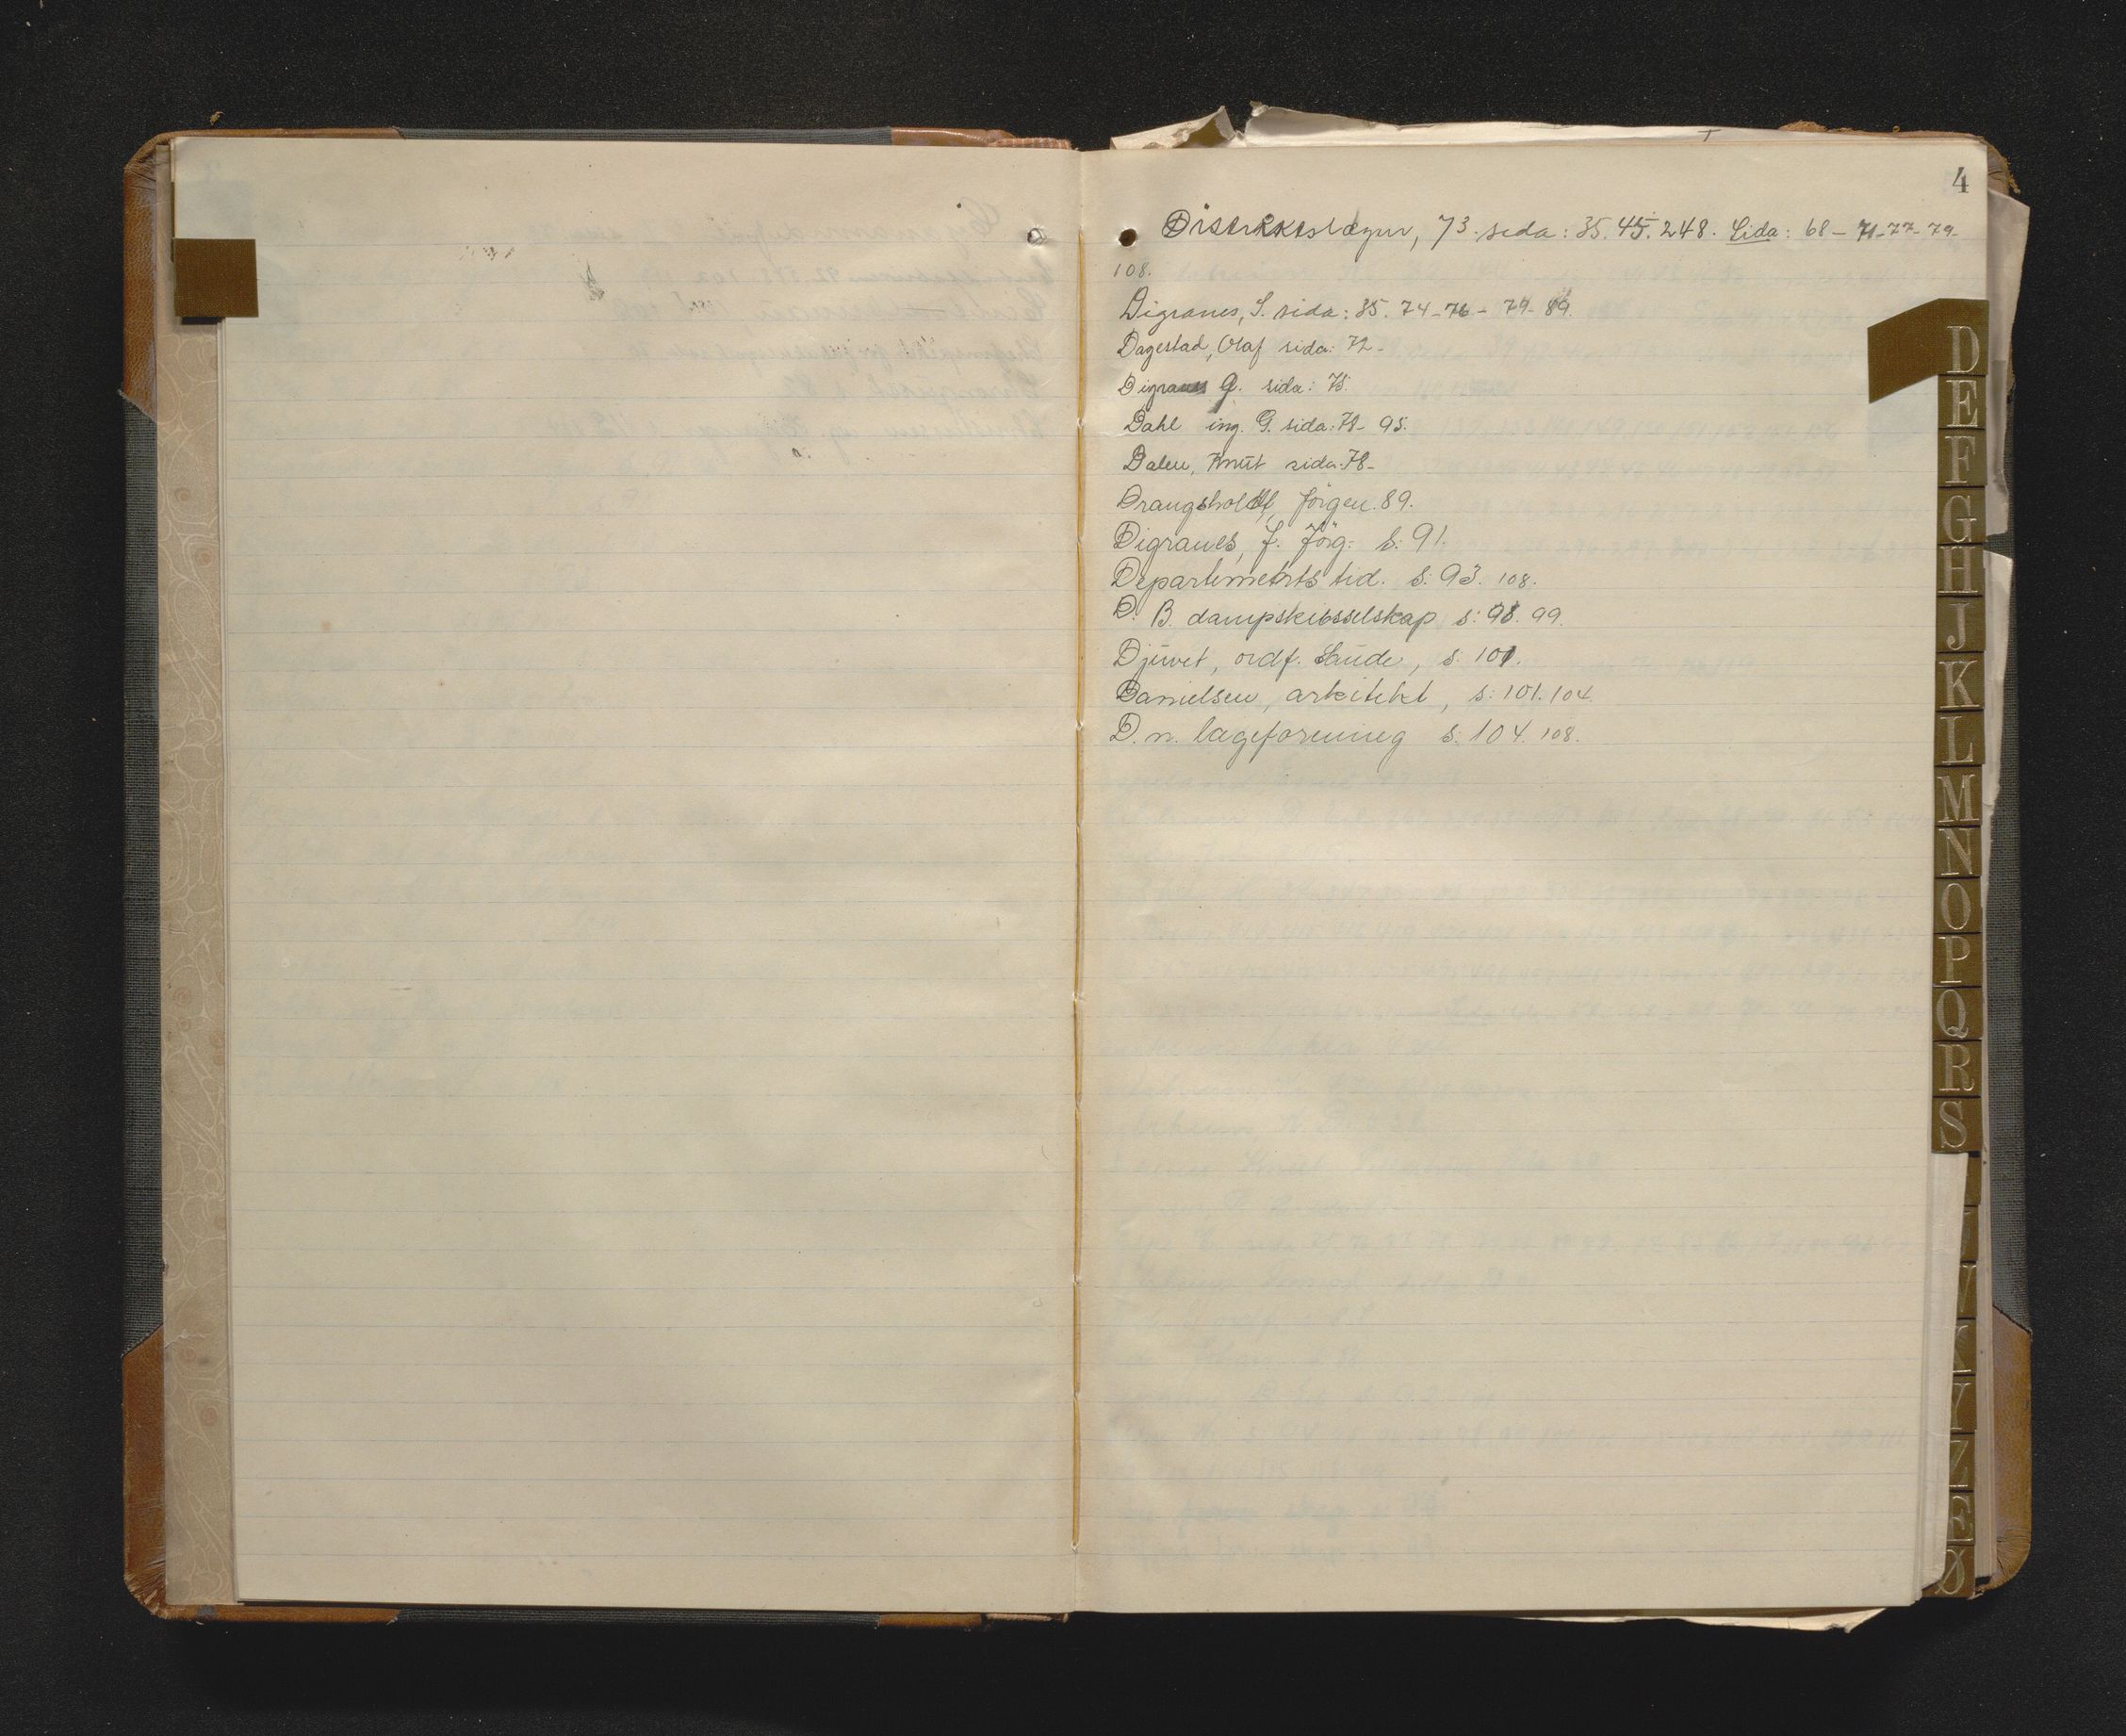 4
Distriktslægur, 73. sida: 35. 45. 248. Sida: 68 - 71-77-79-
108.
Digranes, S. sida: 35. 74-76-79-89.
Dagestad, Olaf sida: 72-
Digranes G. sida: 75.
Dahl ing. G. sida: 78- 95.
Dalen, Knut sida: 78-
Drangsholdt, Jörgen. 89.
Digranes, J. Jörg: S: 91.
Departementstid. S: 93. 108.
D. B. dampskibsselskap s: 98. 99.
Djuvet, ordf. Saude, s. 101.
Danielsen, arkitekt, s: 101. 104.
D. n. lageforening s: 104. 108.
D
E
F
G
H
J
K
L
M
N
O
P
Q
R
S
V
Y
Z
Ø